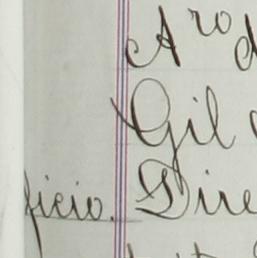 A^ro d
Gil
ficio. Dire